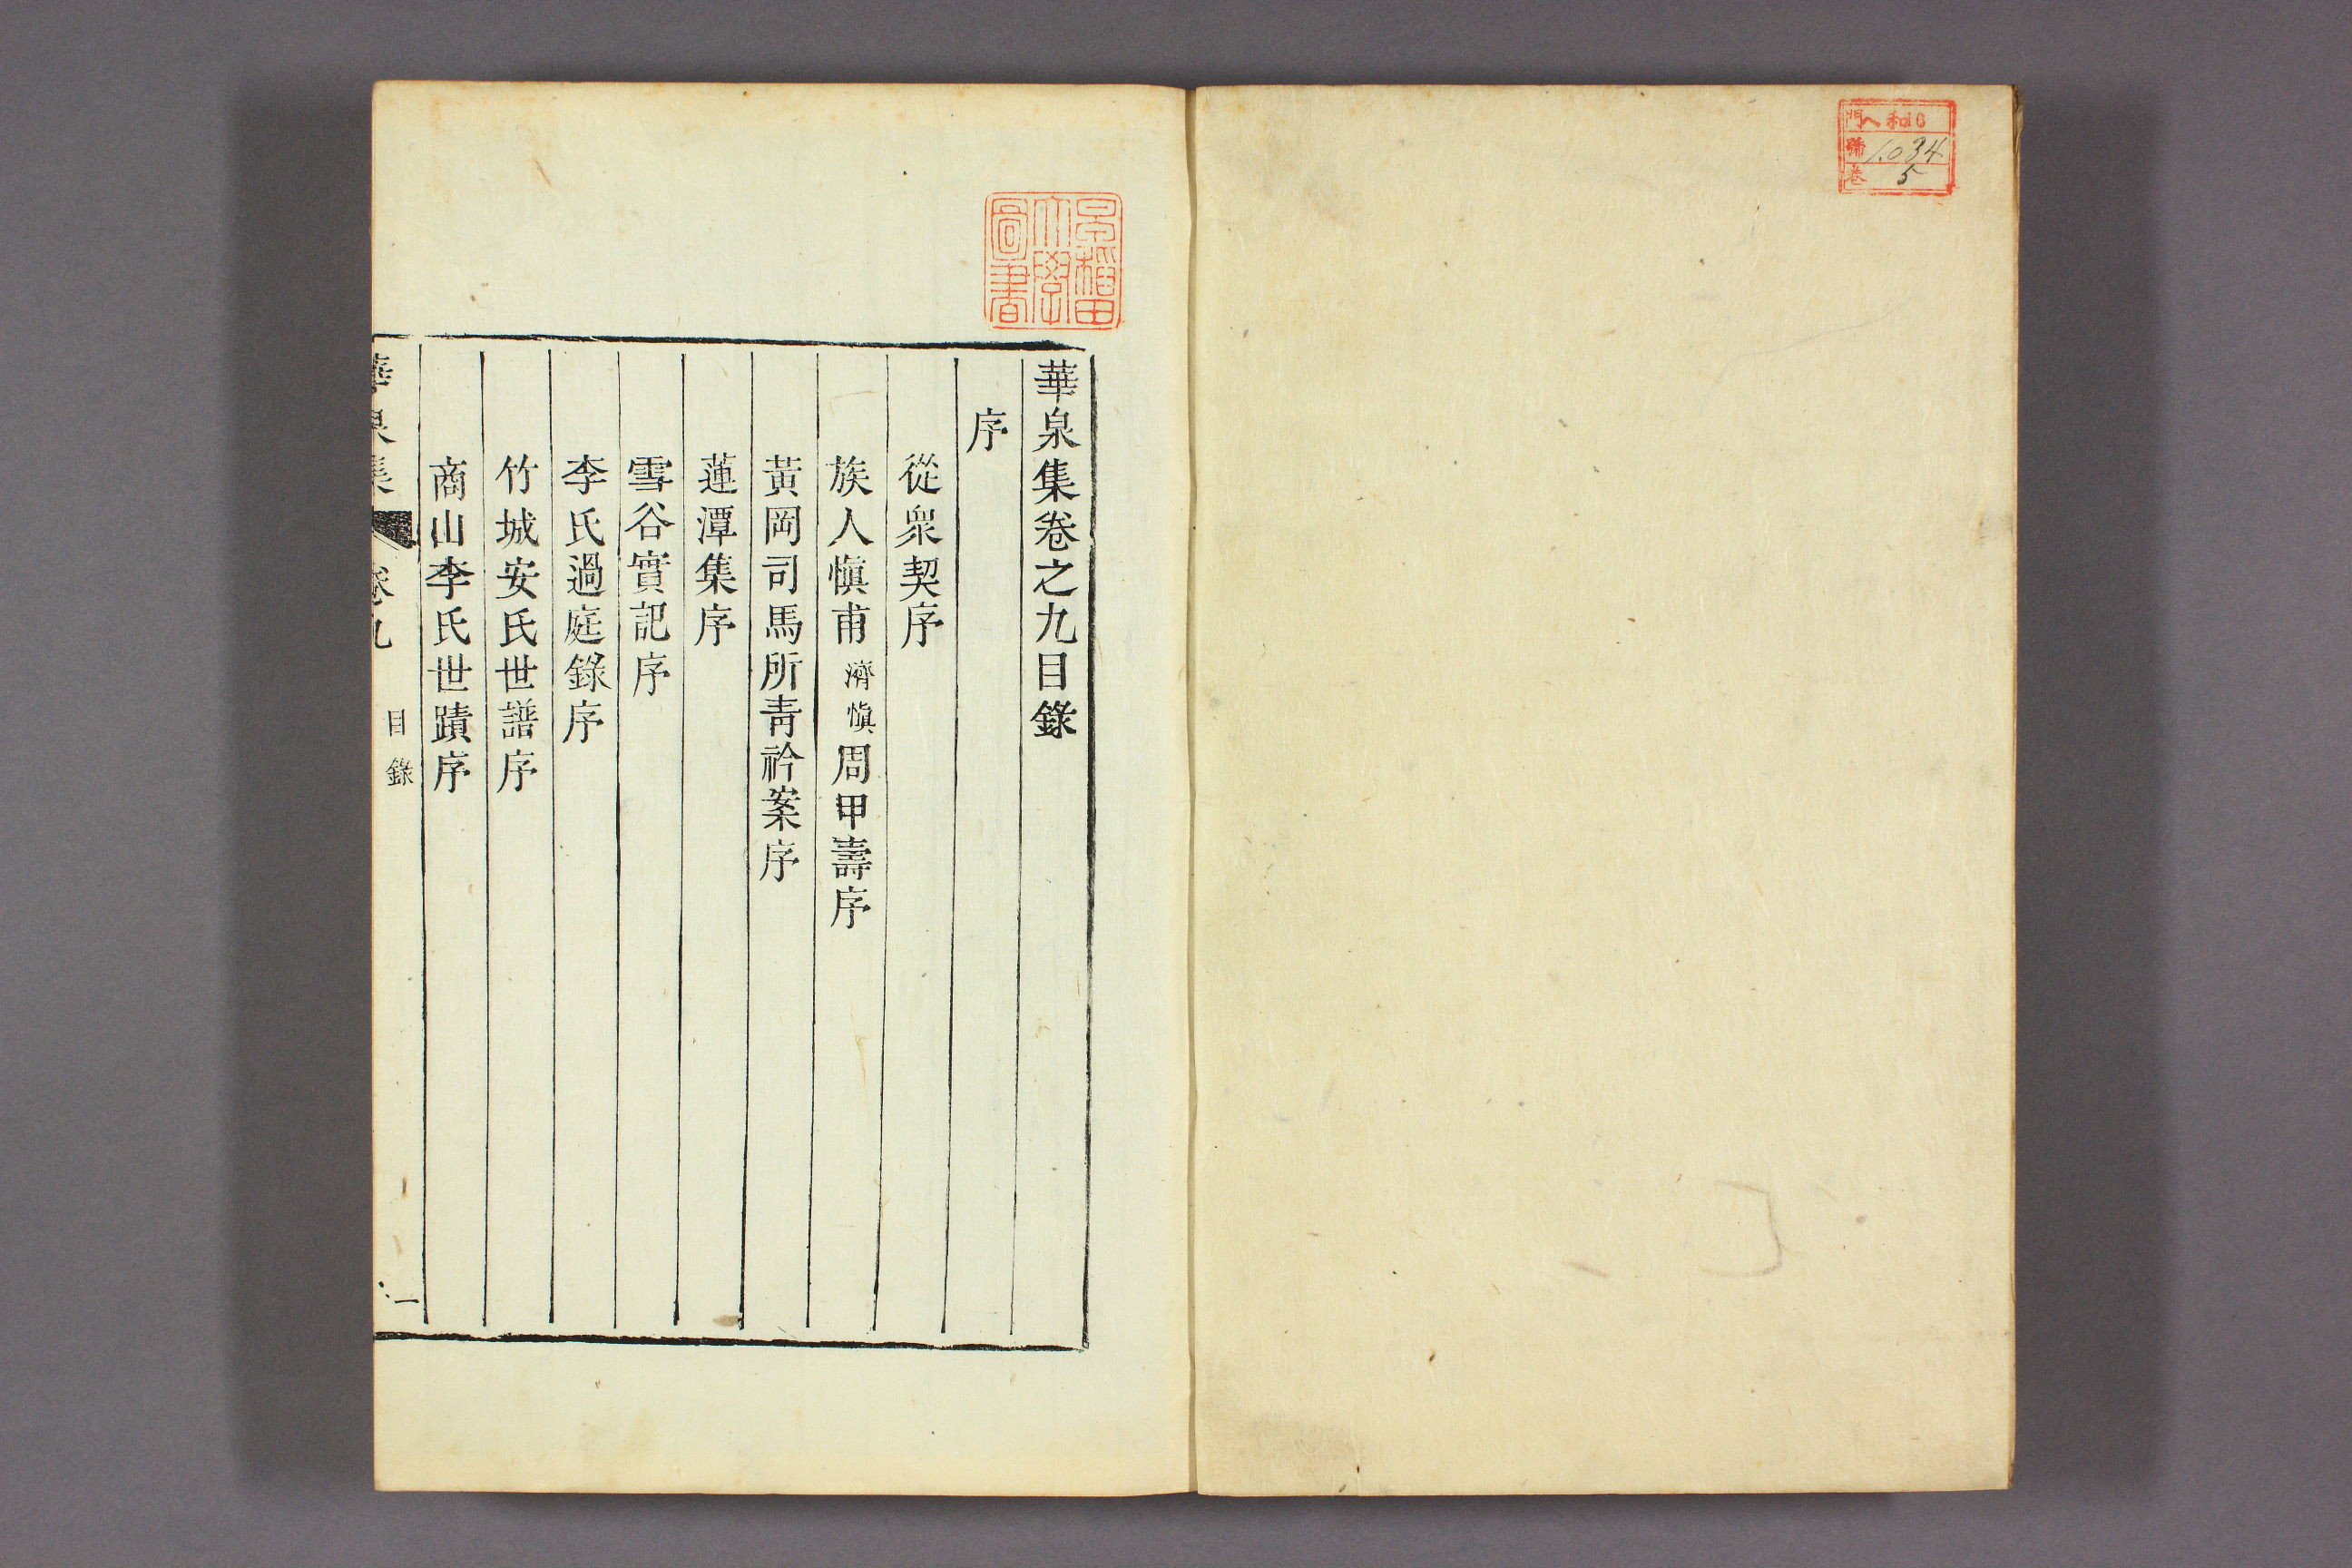 門 ヘ和16
號 1.034
卷 5
早稻田
大學
圖書
華泉集卷之九目錄
序
從衆契序
族人愼甫濟愼周甲壽序
黃岡司馬所靑衿案序
蓮潭集序
雪谷實記序
李氏過庭錄序
竹城安氏世譜序
商山李氏世蹟序
華泉集 卷九 目錄 一